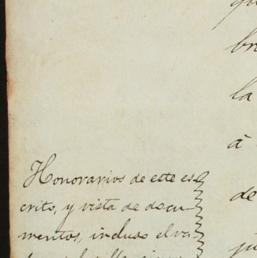 qu
bre
la
à
de
ju
Honorarios de este es
crito, y vista de docu-
mentos, incluso el va-